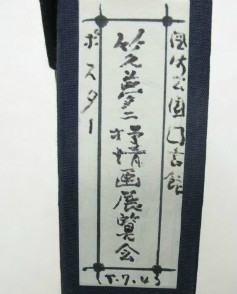 公園図書館
竹久夢二抒情画展覧会
ポスター